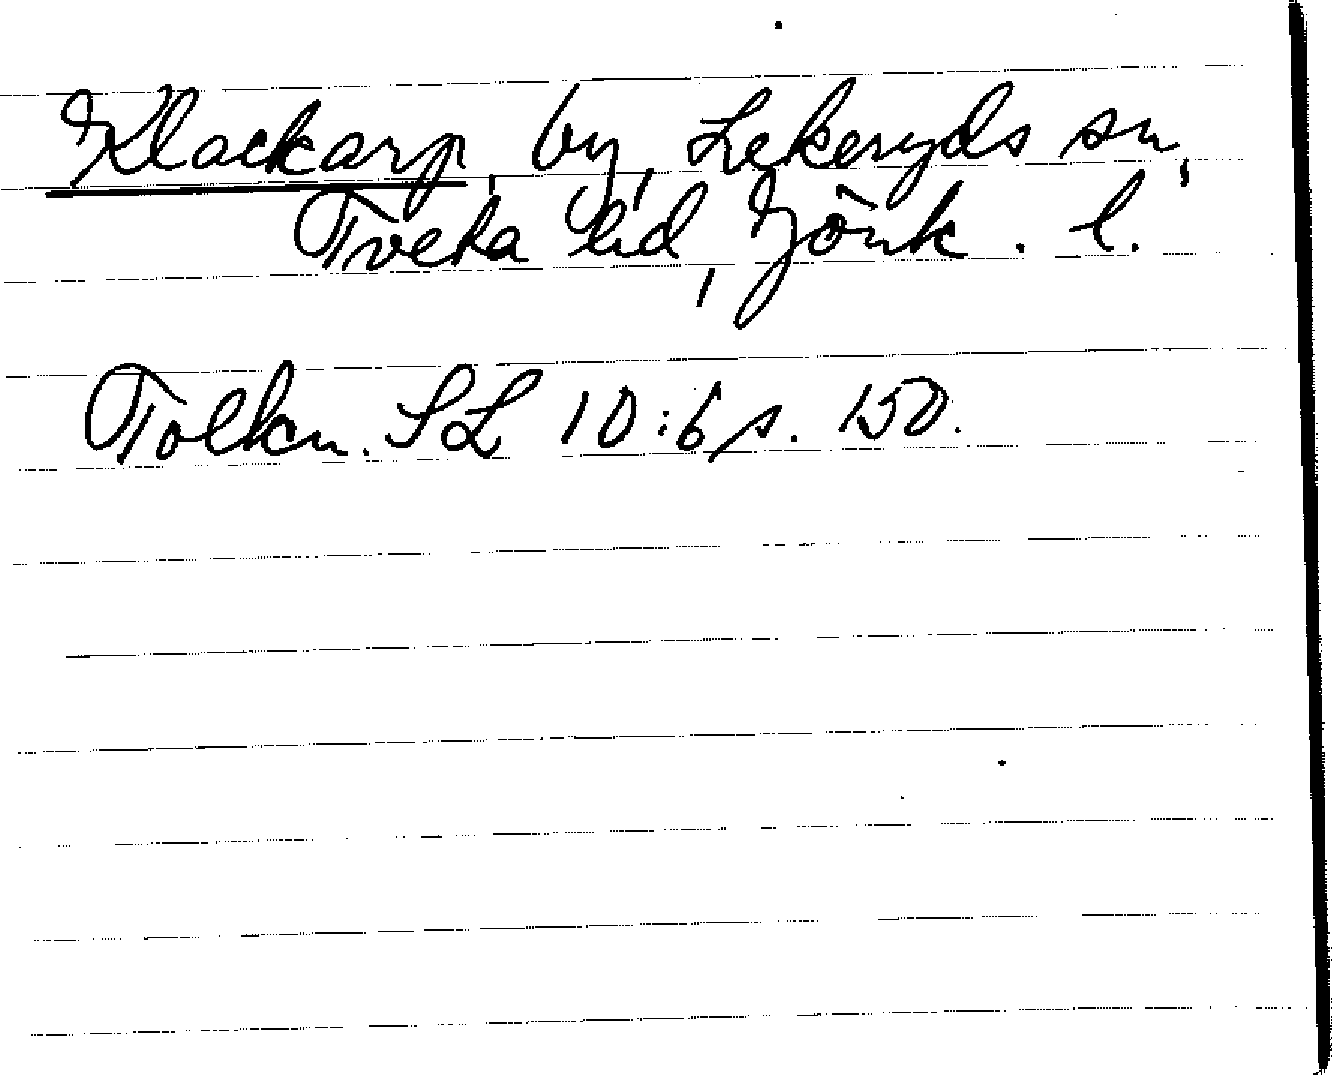 Klackarp, by, Lekeryds sn,
Tveta hd, Jönk. l.
Tolkn. SL 10:6 s. 150.